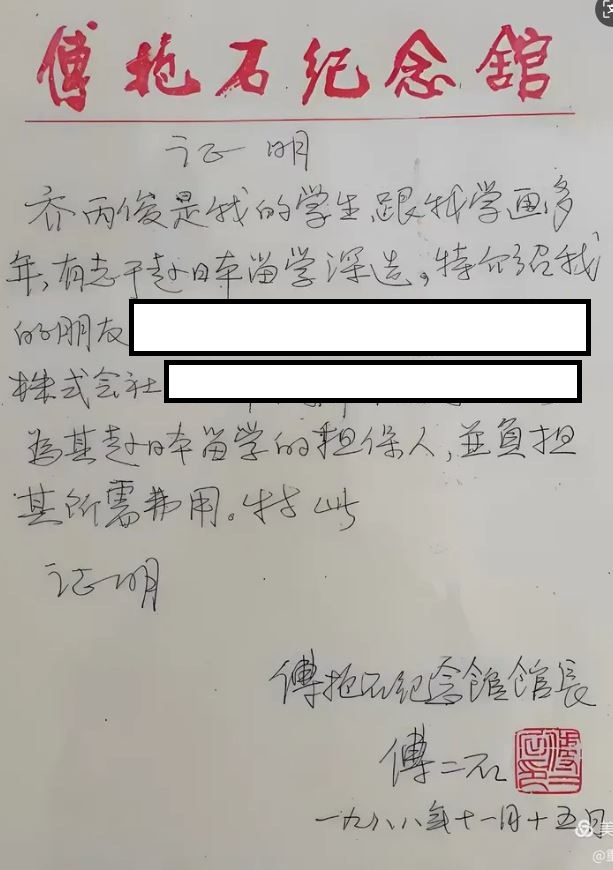 傅抱石纪念館
证明
乔丙俊是我的学生,跟我学画多
年,有志于赴日本留学深造。特介绍我
的朋友
株式会社
為其赴日本留学的担保人,並負担
其所需费用。特此
证明
傅抱石纪念館館長
傅二石
一九八八年十一月十五日
美
@重